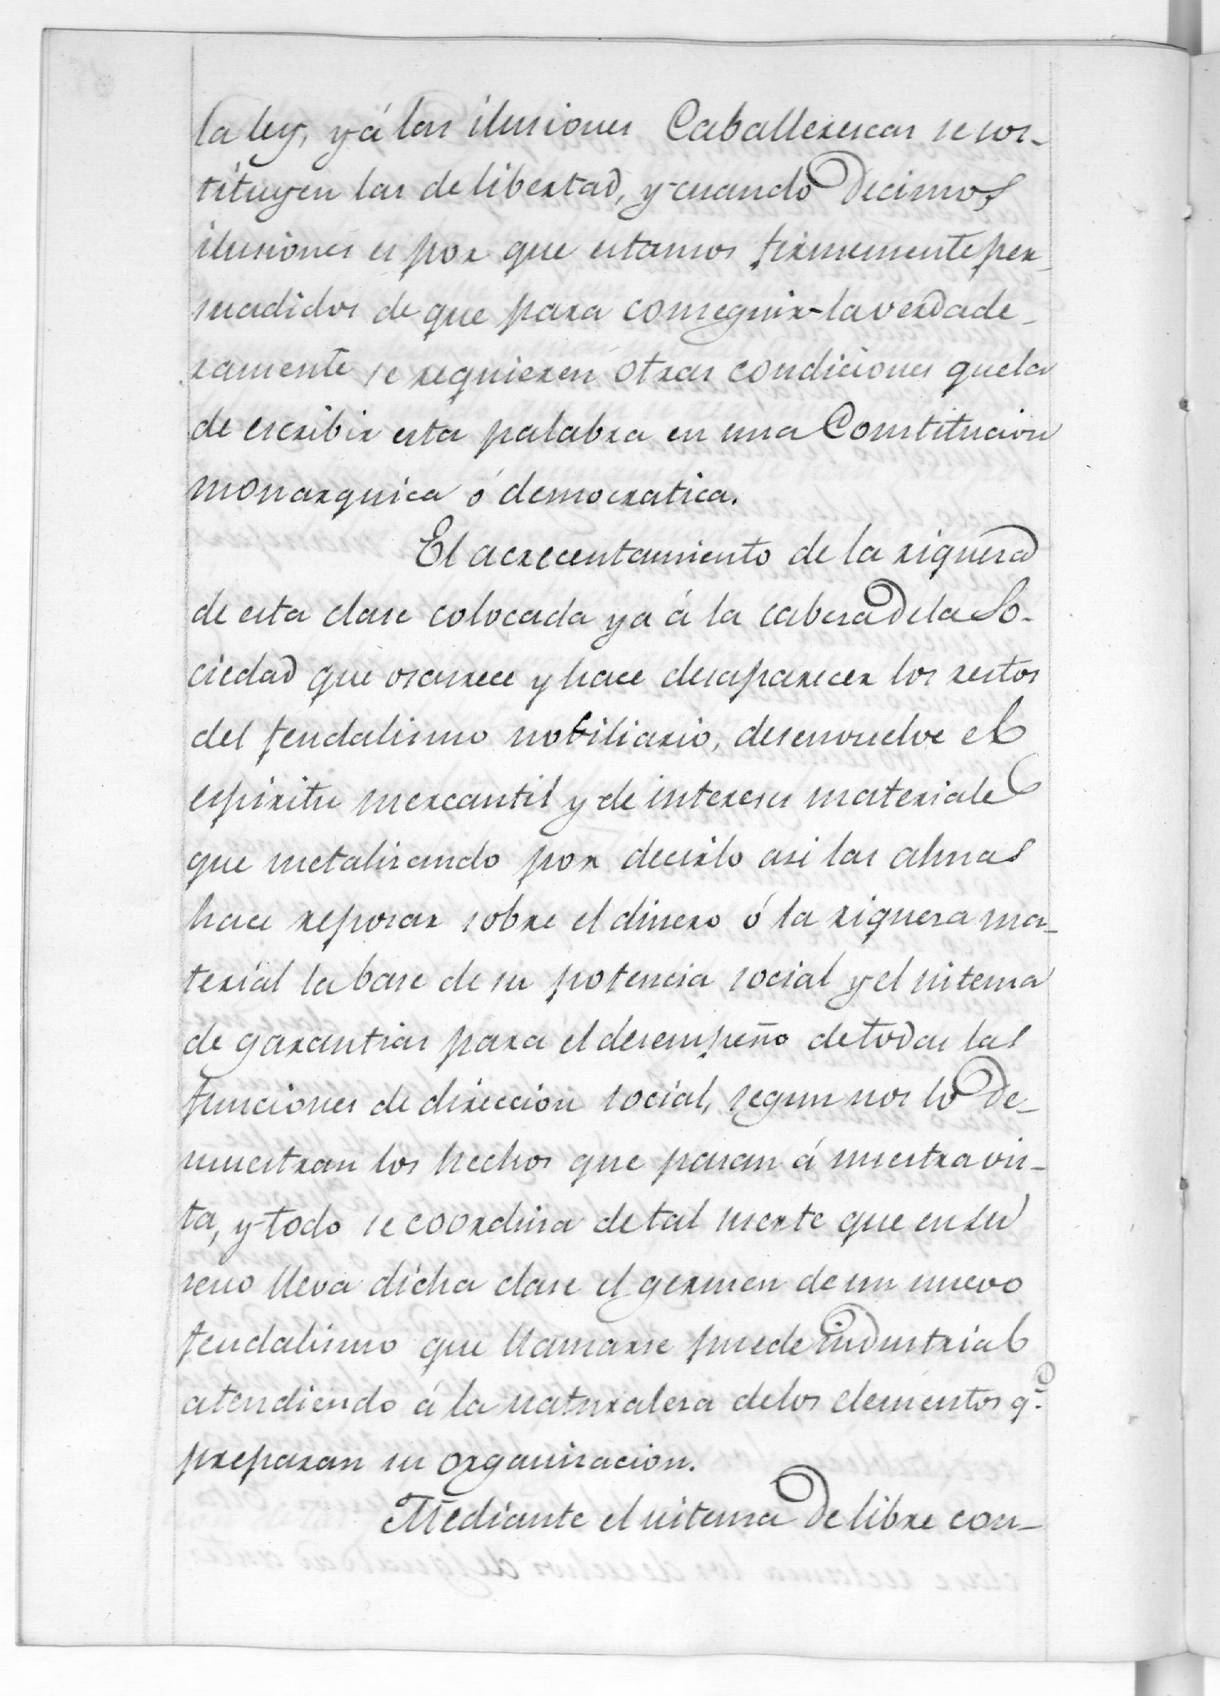 la ley, y á las ilusiones Caballerescas se sos-
tituyen las de libertad, y cuando decimos
ilusiones es por que estamos firmemente per-
suadidos de que para conseguir la verdade-
ramente se requieren otras condiciones que la
de escribir esta palabra en una Constitucion
monarquica ó democratica.
El acrecentamiento de la riquesa
de esta clase colocada ya á la cabesa de la So-
ciedad que oscurece y hace desaparecer los restos
del feudalismo nobiliario, desenvuelve el
espiritu mercantil y de intereses materiales
que metalisando por decirlo asi las almas
hace reposar sobre el dinero ó la riquesa ma-
terial la base de su potencia social y el sistema
de garantias para el desempeño de todas las
funciones de direccion social, segun nos lo de-
muestran los hechos que pasan á nuestra vis-
ta, y todo se coordina de tal suerte que en su
seno lleva dicha clase el germen de un nuevo
feudalismo que llamarse puede industrial
atendiendo á la naturalesa de los elementos q.e
preparan su organisacion.
Mediante el sistema de libre con-